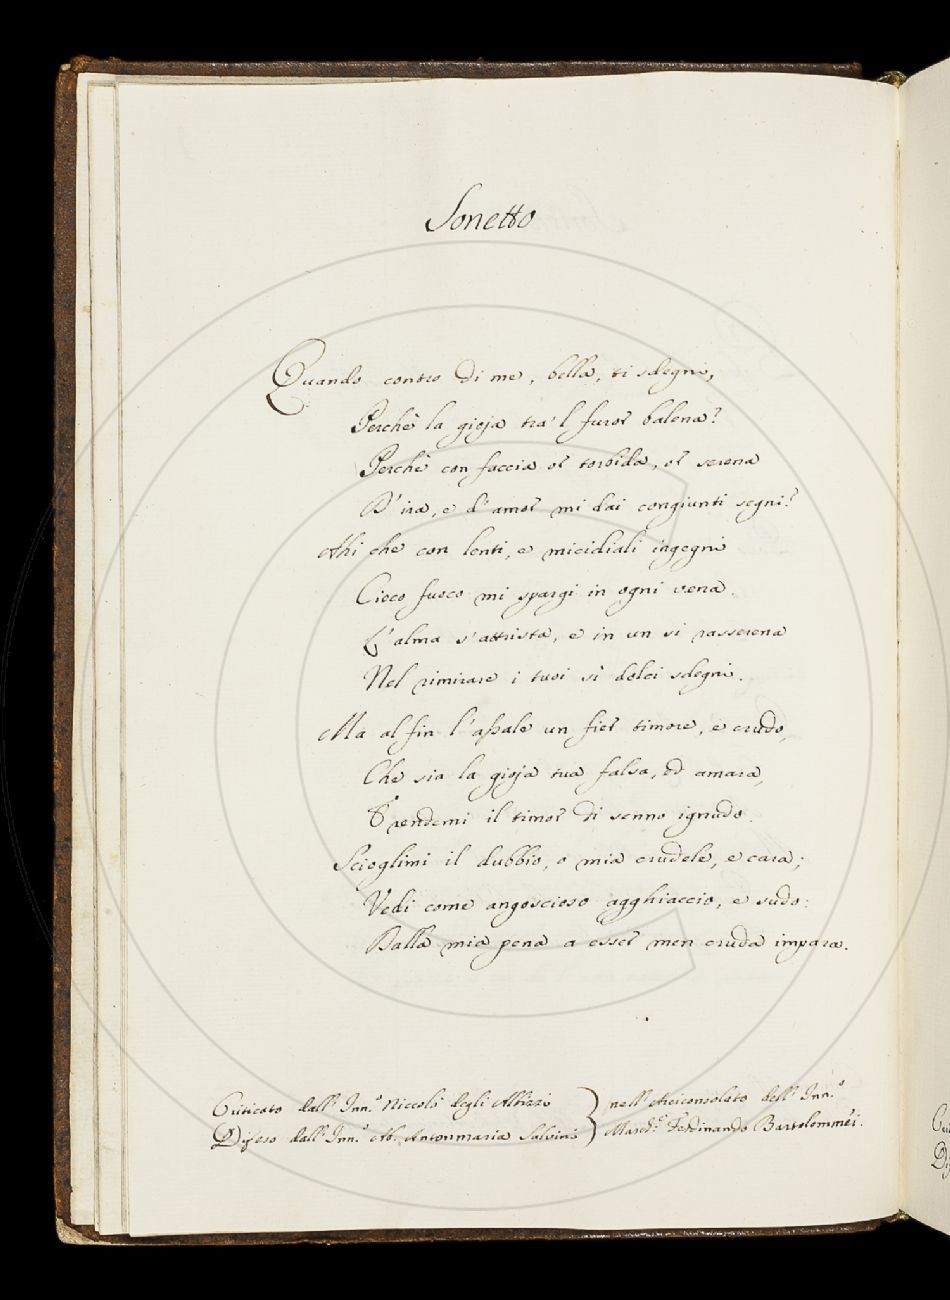 Sonetto
Quando contro di me, bella, ti sdegni,
Perchè la gioja tra 'l furor balena?
Perchè con faccia or torbida, or serena
D'ira, e d'amor mi dai congiunti segni?
Ahi che con lenti, e micidiali ingegni
Cieco fuoco mi spargi in ogni vena.
L'alma s'attrista, e in un si rasserena
Nel rimirare i tuoi sì dolci sdegni.
Ma al fin l'assale un fier timore, e crudo,
Che sia la gioja tua falsa, ed amara,
E rendemi il timor di senno ignudo.
Scioglimi il dubbio, o mia crudele, e cara;
Vedi come angoscioso agghiaccio, e sudo:
Dalla mia pena a esser men cruda impara.
Criticato dall' Inn.º Niccolò degli Albizzi } nell' Arciconsolato dell' Inn.º
Difeso dall' Inn.º Ab. Antonmaria Salvini } March.e Ferdinando Bartolommei.